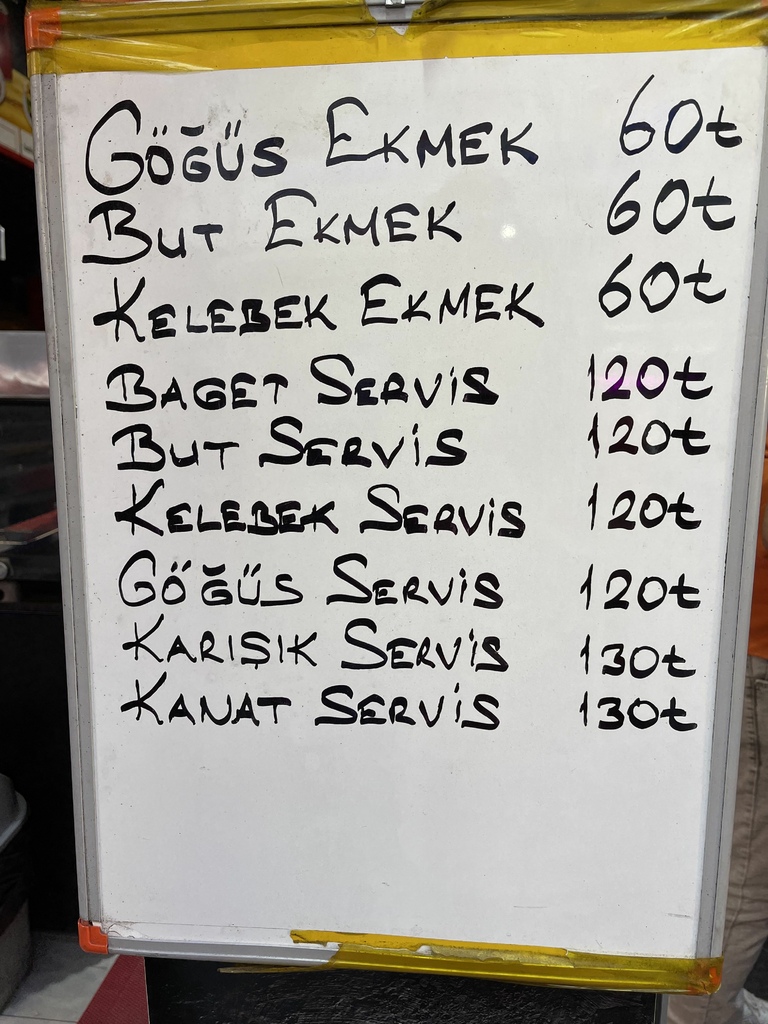 GÖĞÜS EKMEK 60t
BUT EKMEK 60t
KELEBEK EKMEK 60t
BAGET SERVİS 120t
BUT SERVİS 120t
KELEBEK SERVİS 120t
GÖĞÜS SERVİS 120t
KARIŞIK SERVİS 130t
KANAT SERVİS 130t